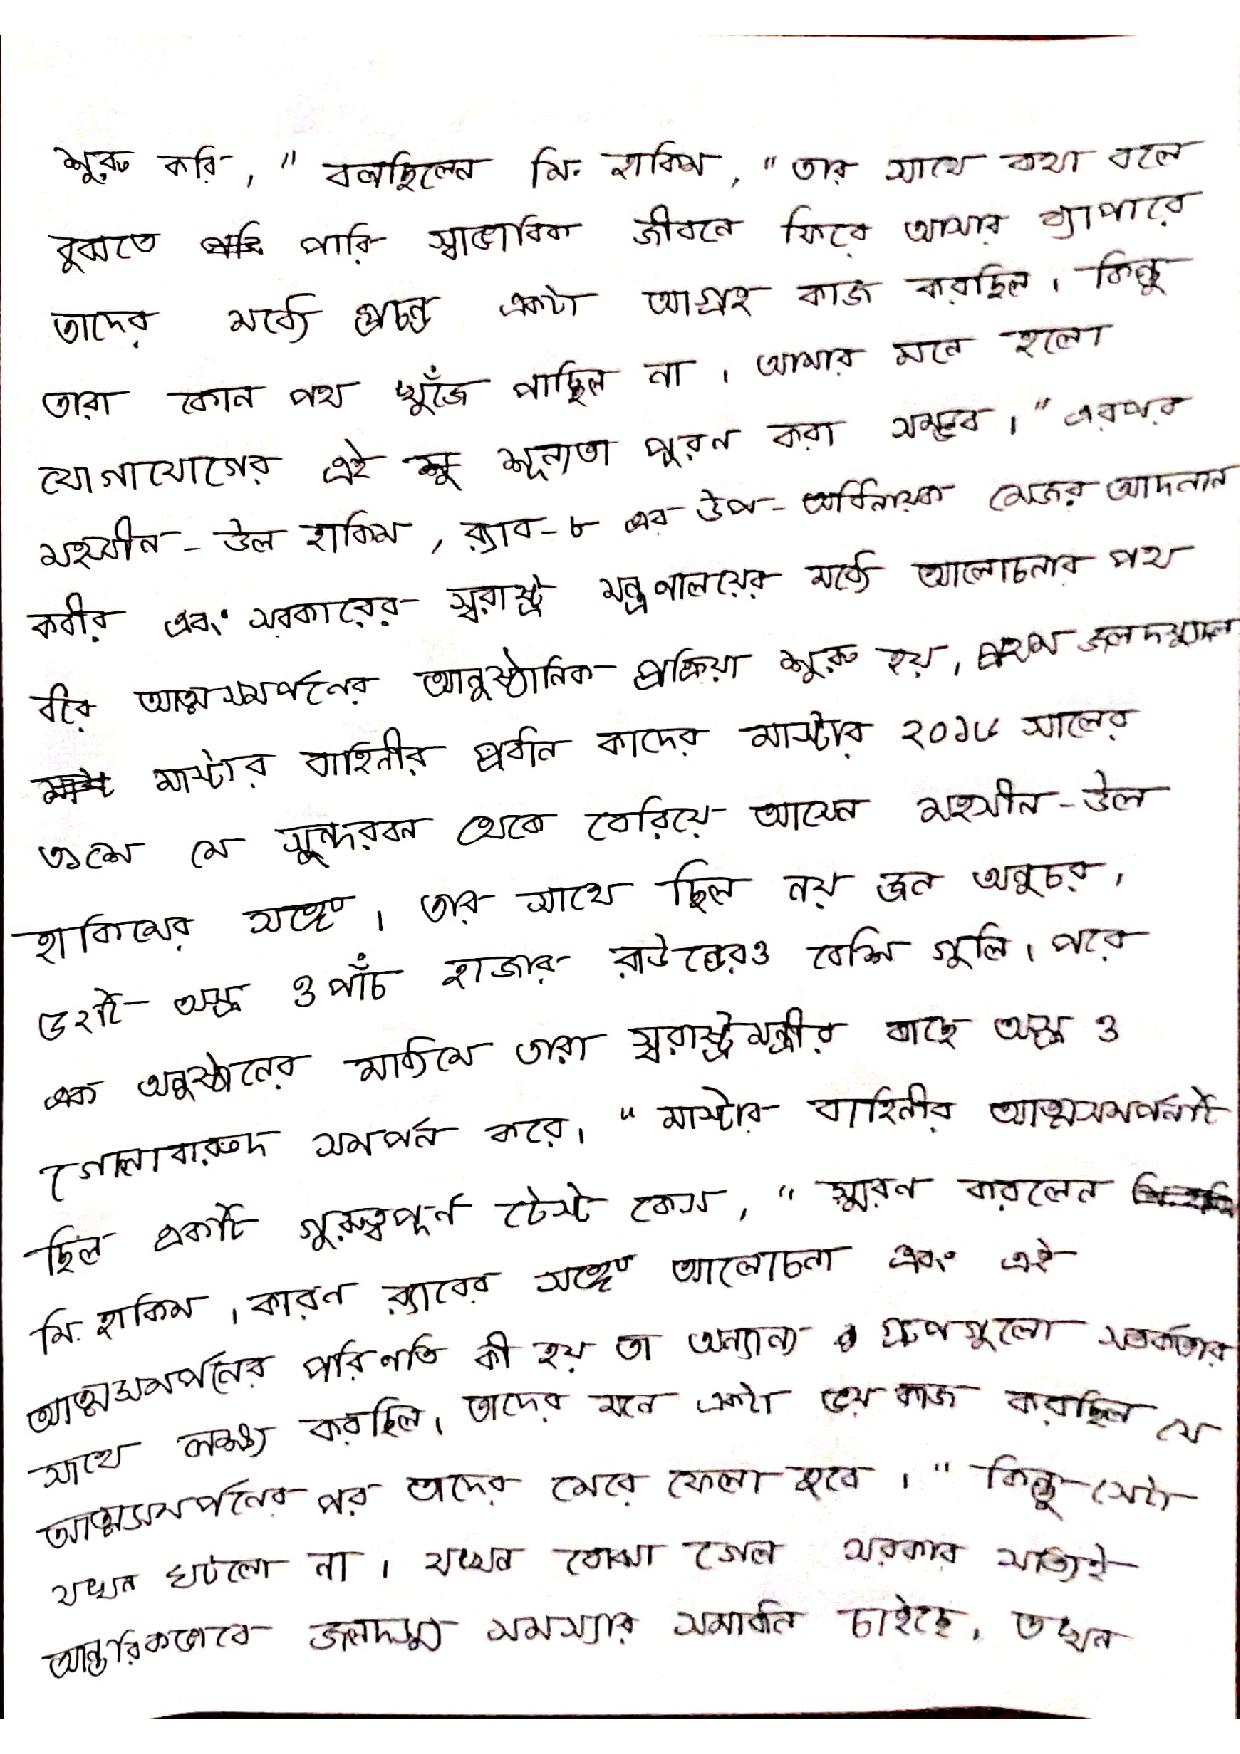 শুরু করি, " বলছিলেন মি. হাকিম, "তার সাথে কথা বলে
বুঝতে পারি স্বাভাবিক জীবনে ফিরে আসার ব্যাপারে
তাদের মধ্যে প্রচন্ড একটা আগ্রহ কাজ করছিল। কিন্তু
তারা কোন পথ খুঁজে পাচ্ছিল না। আমার মনে হলো
যোগাযোগের এই শূন্যতা পূরণ করা সম্ভব।" এরপর
মহসীন-উল হাকিম, র‍্যাব-৮ এর উপ-অধিনায়ক মেজর আদনান
কবীর এবং সরকারের স্বরাষ্ট্র মন্ত্রণালয়ের মধ্যে আলোচনার পথ
ধরে আত্মসমর্পনের আনুষ্ঠানিক প্রক্রিয়া শুরু হয়, প্রথম জলদস্যুদল
মাস্টার বাহিনীর প্রধান কাদের মাস্টার ২০১৬ সালের
৩১শে মে সুন্দরবন থেকে বেরিয়ে আসেন মহসীন-উল
হাকিমের সঙ্গে। তার সাথে ছিল নয় জন অনুচর,
৫২টি অস্ত্র ও পাঁচ হাজার রাউন্ডেরও বেশি গুলি। পরে
এক অনুষ্ঠানের মাধ্যমে তারা স্বরাষ্ট্রমন্ত্রীর কাছে অস্ত্র ও
গোলাবারুদ সমর্পন করে। "মাস্টার বাহিনীর আত্মসমর্পনটি
ছিল একটি গুরুত্বপূর্ণ টেস্ট কেস, " স্মরণ করলেন
মি. হাকিম, কারণ র‍্যাবের সঙ্গে আলোচনা এবং এই
আত্মসমর্পনের পরিণতি কী হয় তা অন্যান্য গ্রুপগুলো সতর্কতার
সাথে লক্ষ্য করছিল। তাদের মনে একটা ভয় কাজ করছিল যে
আত্মসমর্পনের পর তাদের মেরে ফেলা হবে।" কিন্তু সেটা
যখন ঘটলো না। যখন বোঝা গেল সরকার সত্যিই
আন্তরিকভাবে জলদস্যু সমস্যার সমাধান চাইছে, তখন